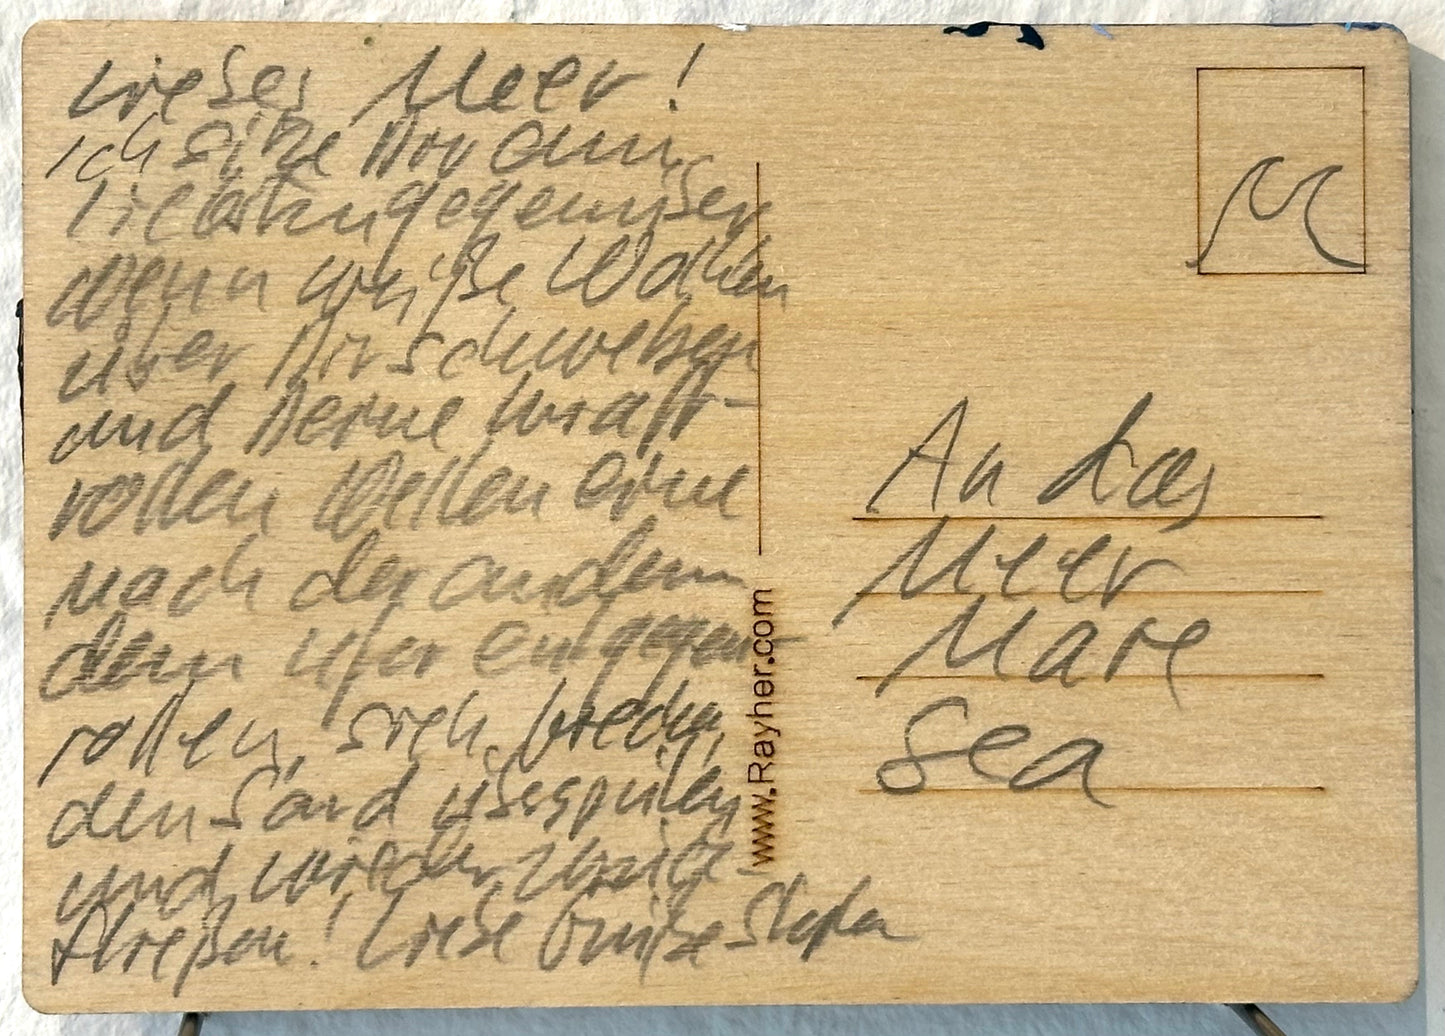 Liebes Meer!
ich sitze Dir am
liebsten gegenüber
wenn weiße Wolken
über Dir schweben
und Deine kraft-
vollen Wellen eine
nach der anderen
dem Ufer entgegen-
rollen, sich brechen,
den Sand überspülen
und wieder zurück-
fließen! Liebe Grüße
www.Rayher.com
An das
Meer
Mare
Sea